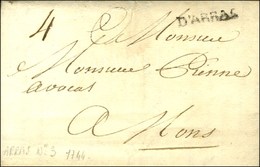 D'ARRAS
4 A Monsieur
Monsieur Etienne
avocat
A Mons
ARRAS N° 3 1744